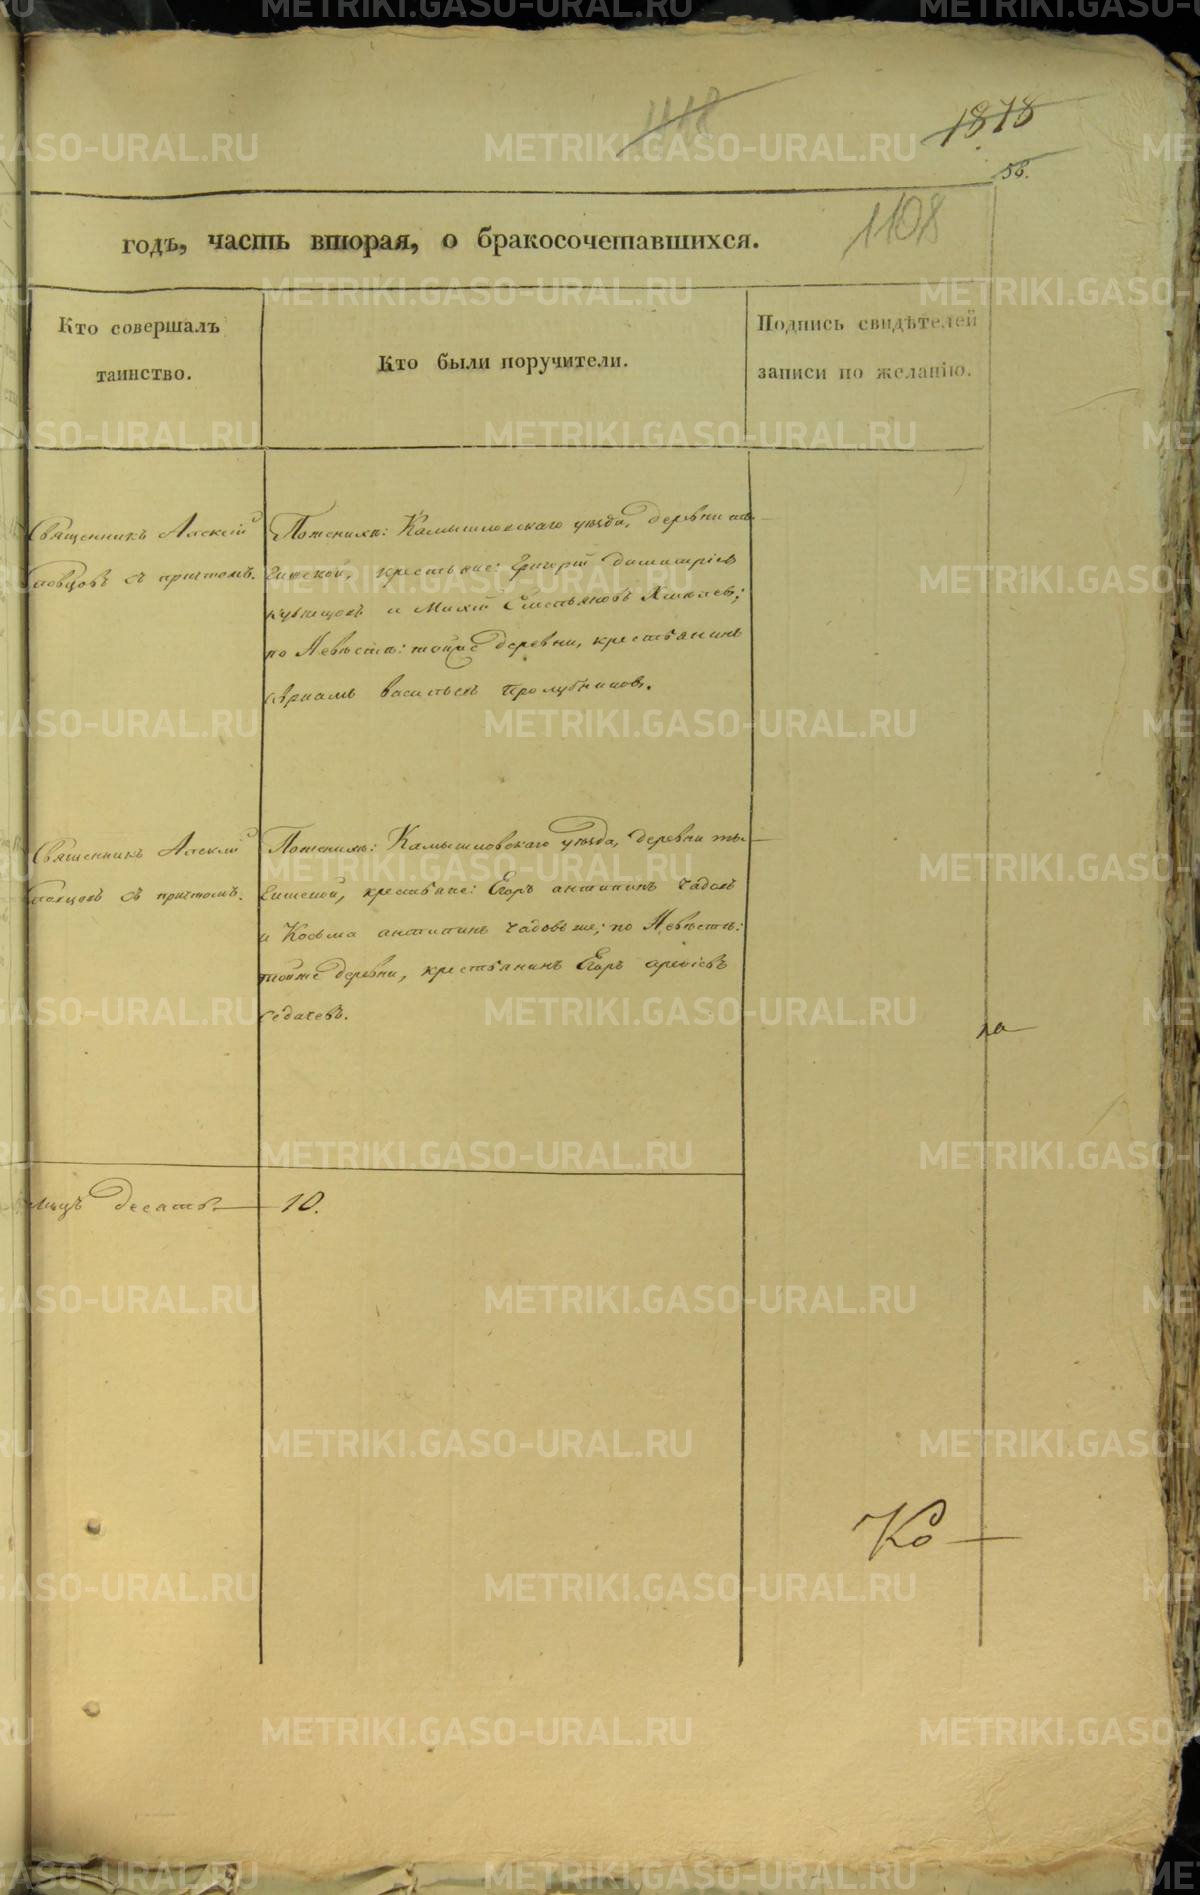 1118
1878
58.
1108
годъ, часть вторая, о бракосочетавшихся.
Кто совершалъ
таинство.
Кто были поручители.
Подпись свидѣтелей
записи по желанію.
Священникъ Алексій
съ притчомъ.
По женихѣ: Камышловскаго уѣзда, деревни
крестьяне: Григорій Димитріевъ
и Емельяновъ
по Невѣстѣ: тойже деревни, крестьянинъ
Васильевъ Пролубниковъ.
Священникъ Алексій
съ притчомъ.
По женихѣ: Камышловскаго уѣзда, деревни
крестьяне: Егоръ Антипинъ Чадовъ
и Козьма Антипинъ Чадовъ же; по Невѣстѣ:
тойже деревни, крестьянинъ Егоръ
Седачевъ.
на
десять 10.
Ко
METRIKI.GASO-URAL.RU